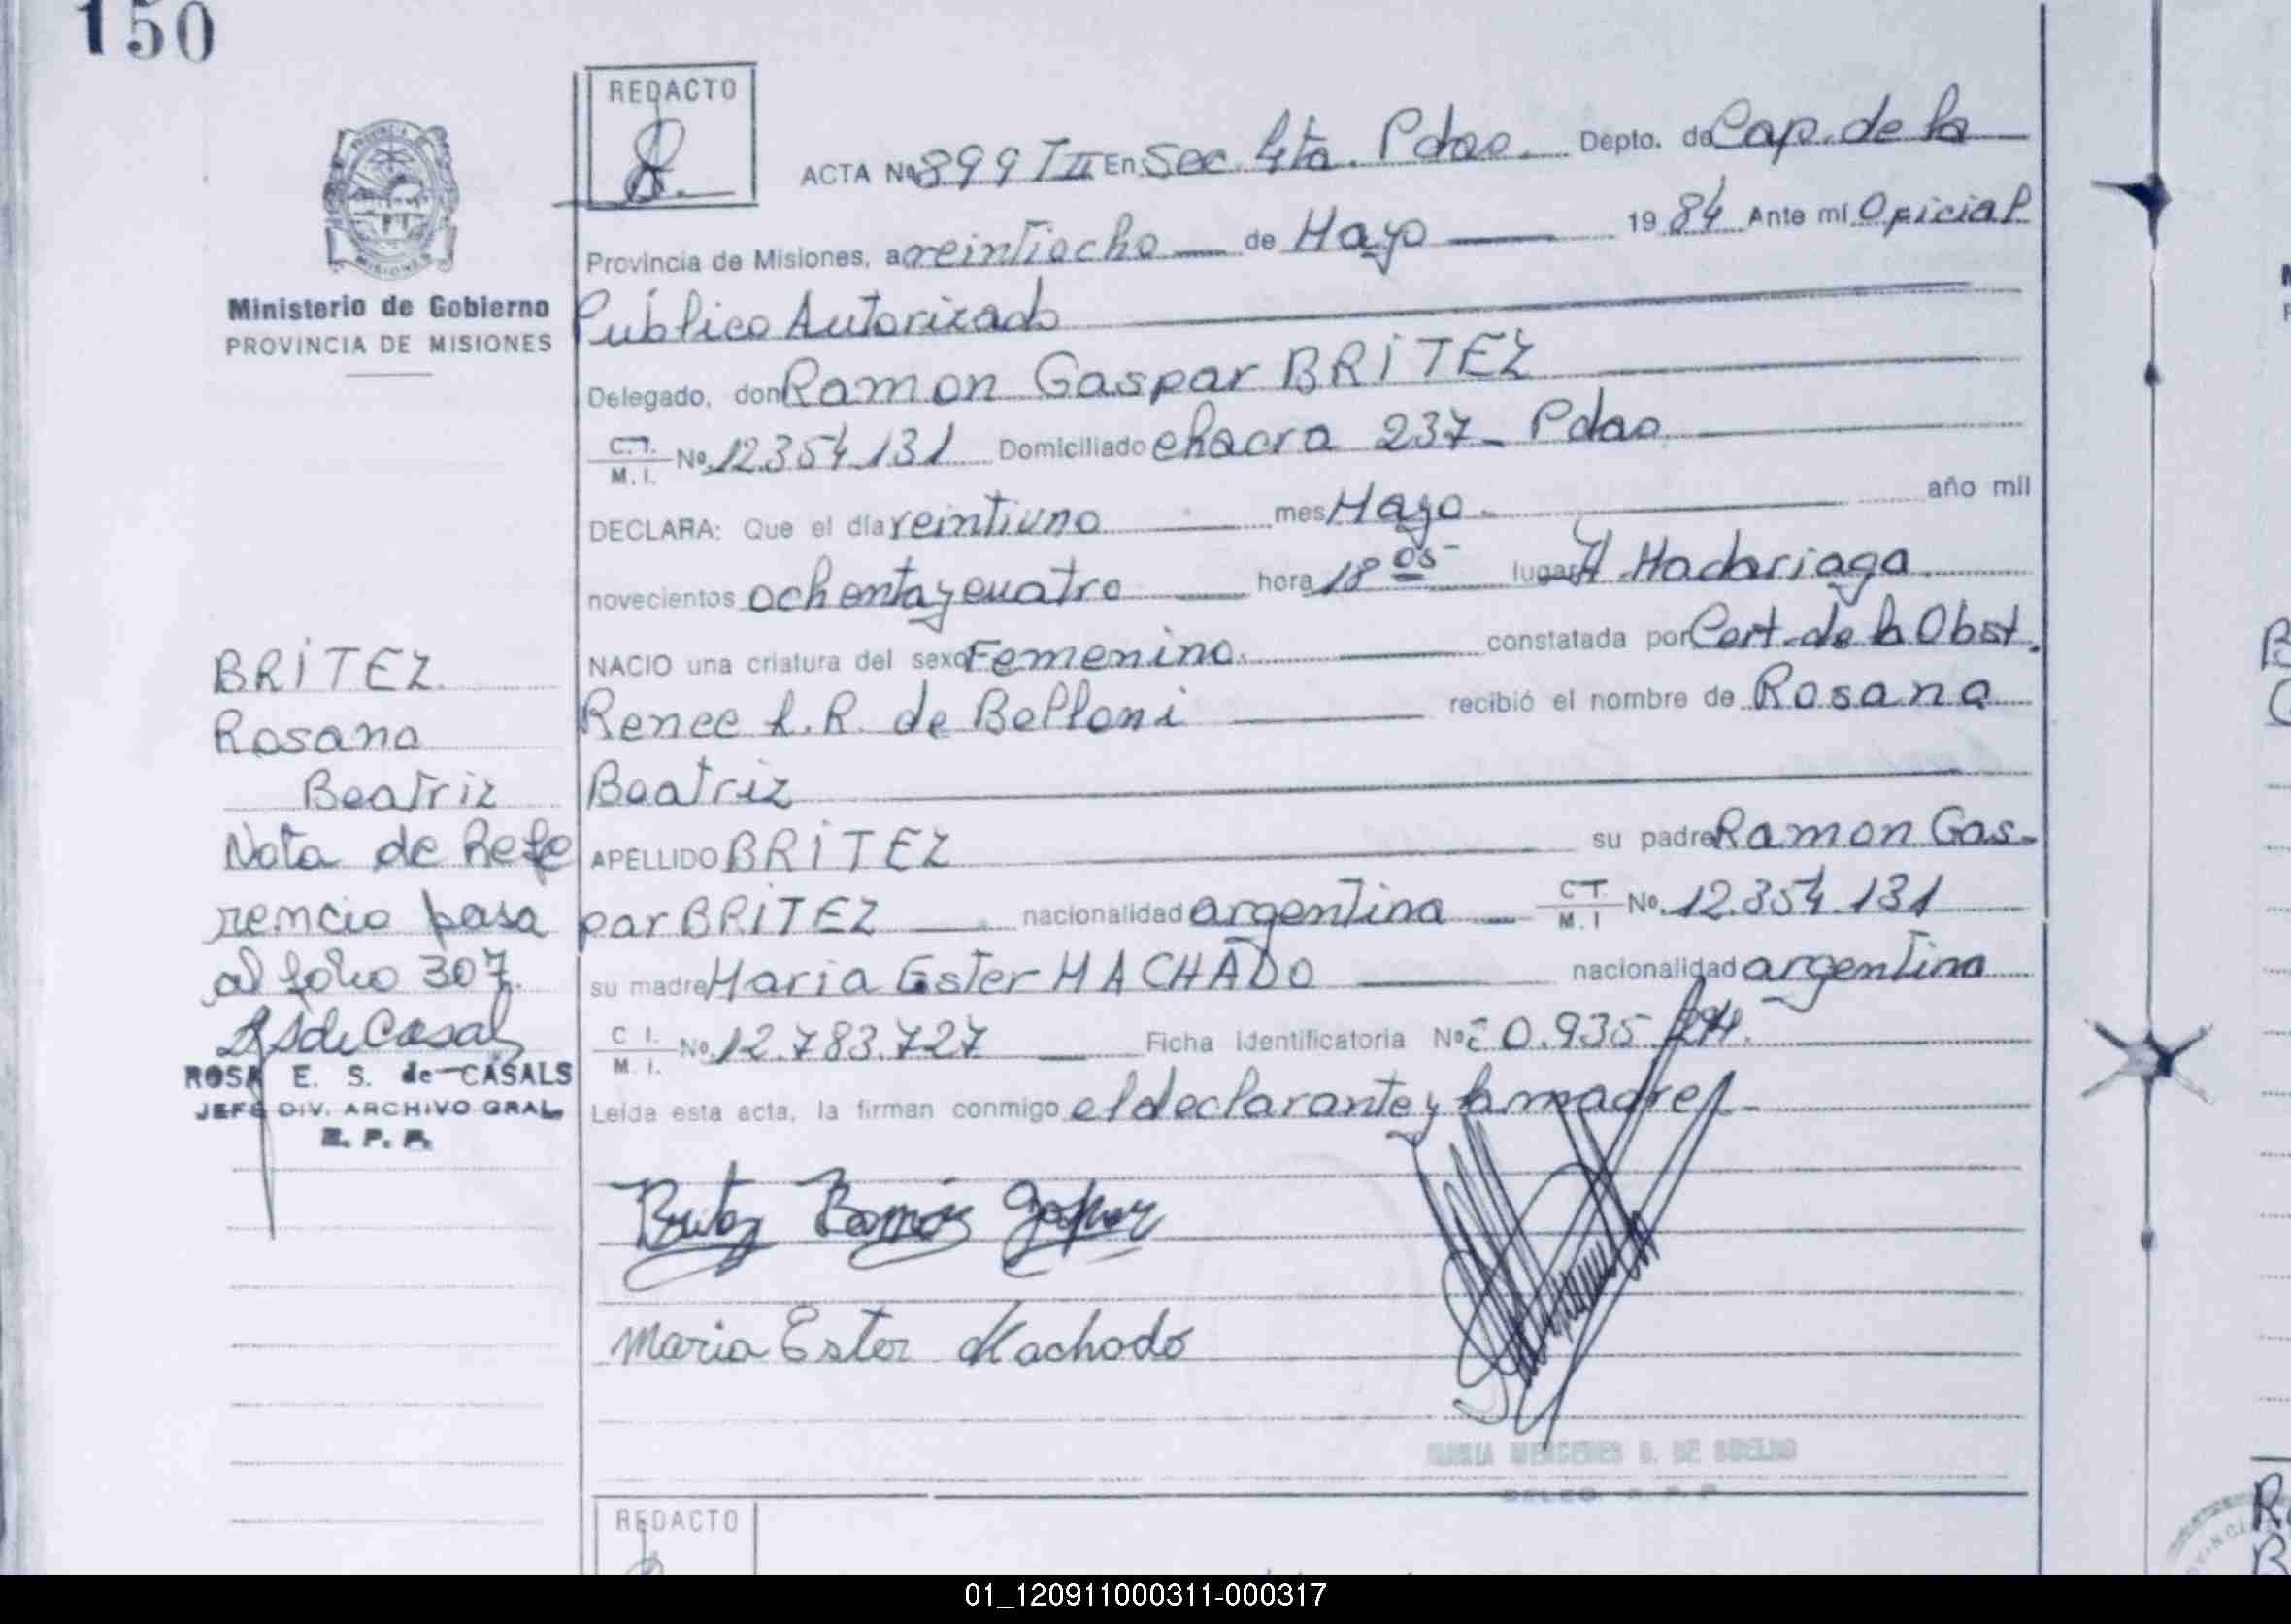 150
REDACTO
ACTA Nº 899 T II En Sec. 4ta. Pdas. Depto. de Cap. de la
Provincia de Misiones, a veintiocho de Mayo 1984 Ante mí Oficial
Público Autorizado
Delegado, don Ramon Gaspar BRITEZ
C.I. M.I. Nº 12.354.131 Domiciliado chacra 237 - Pdas
DECLARA: Que el día veintiuno mes Mayo año mil
novecientos ochenta y cuatro hora 18 05 lugar H. Madariaga
NACIO una criatura del sexo Femenino. constatada por Cert. de la Obst.
Renee L.R. de Belloni recibió el nombre de Rosana
Beatriz
APELLIDO BRITEZ su padre Ramon Gas-
par BRITEZ nacionalidad argentina C.I. M.I Nº 12.354.131
su madre Maria Ester MACHADO nacionalidad argentina
C I. M. I. Nº 12.783.727 Ficha Identificatoria Nº 0.935
Leída esta acta, la firman conmigo el declarante y la madre
Britez Ramón Gaspar
Maria Ester Machado
MARIA MERCEDES G. DE
Ministerio de Gobierno
PROVINCIA DE MISIONES
BRITEZ
Rosana
Beatriz
Nota de Refe
rencia pasa
al folio 307.
RSdeCasal
ROSA E. S. de CASALS
JEFE DIV. ARCHIVO GRAL.
R. P. P.
REDACTO
01_120911000311-000317